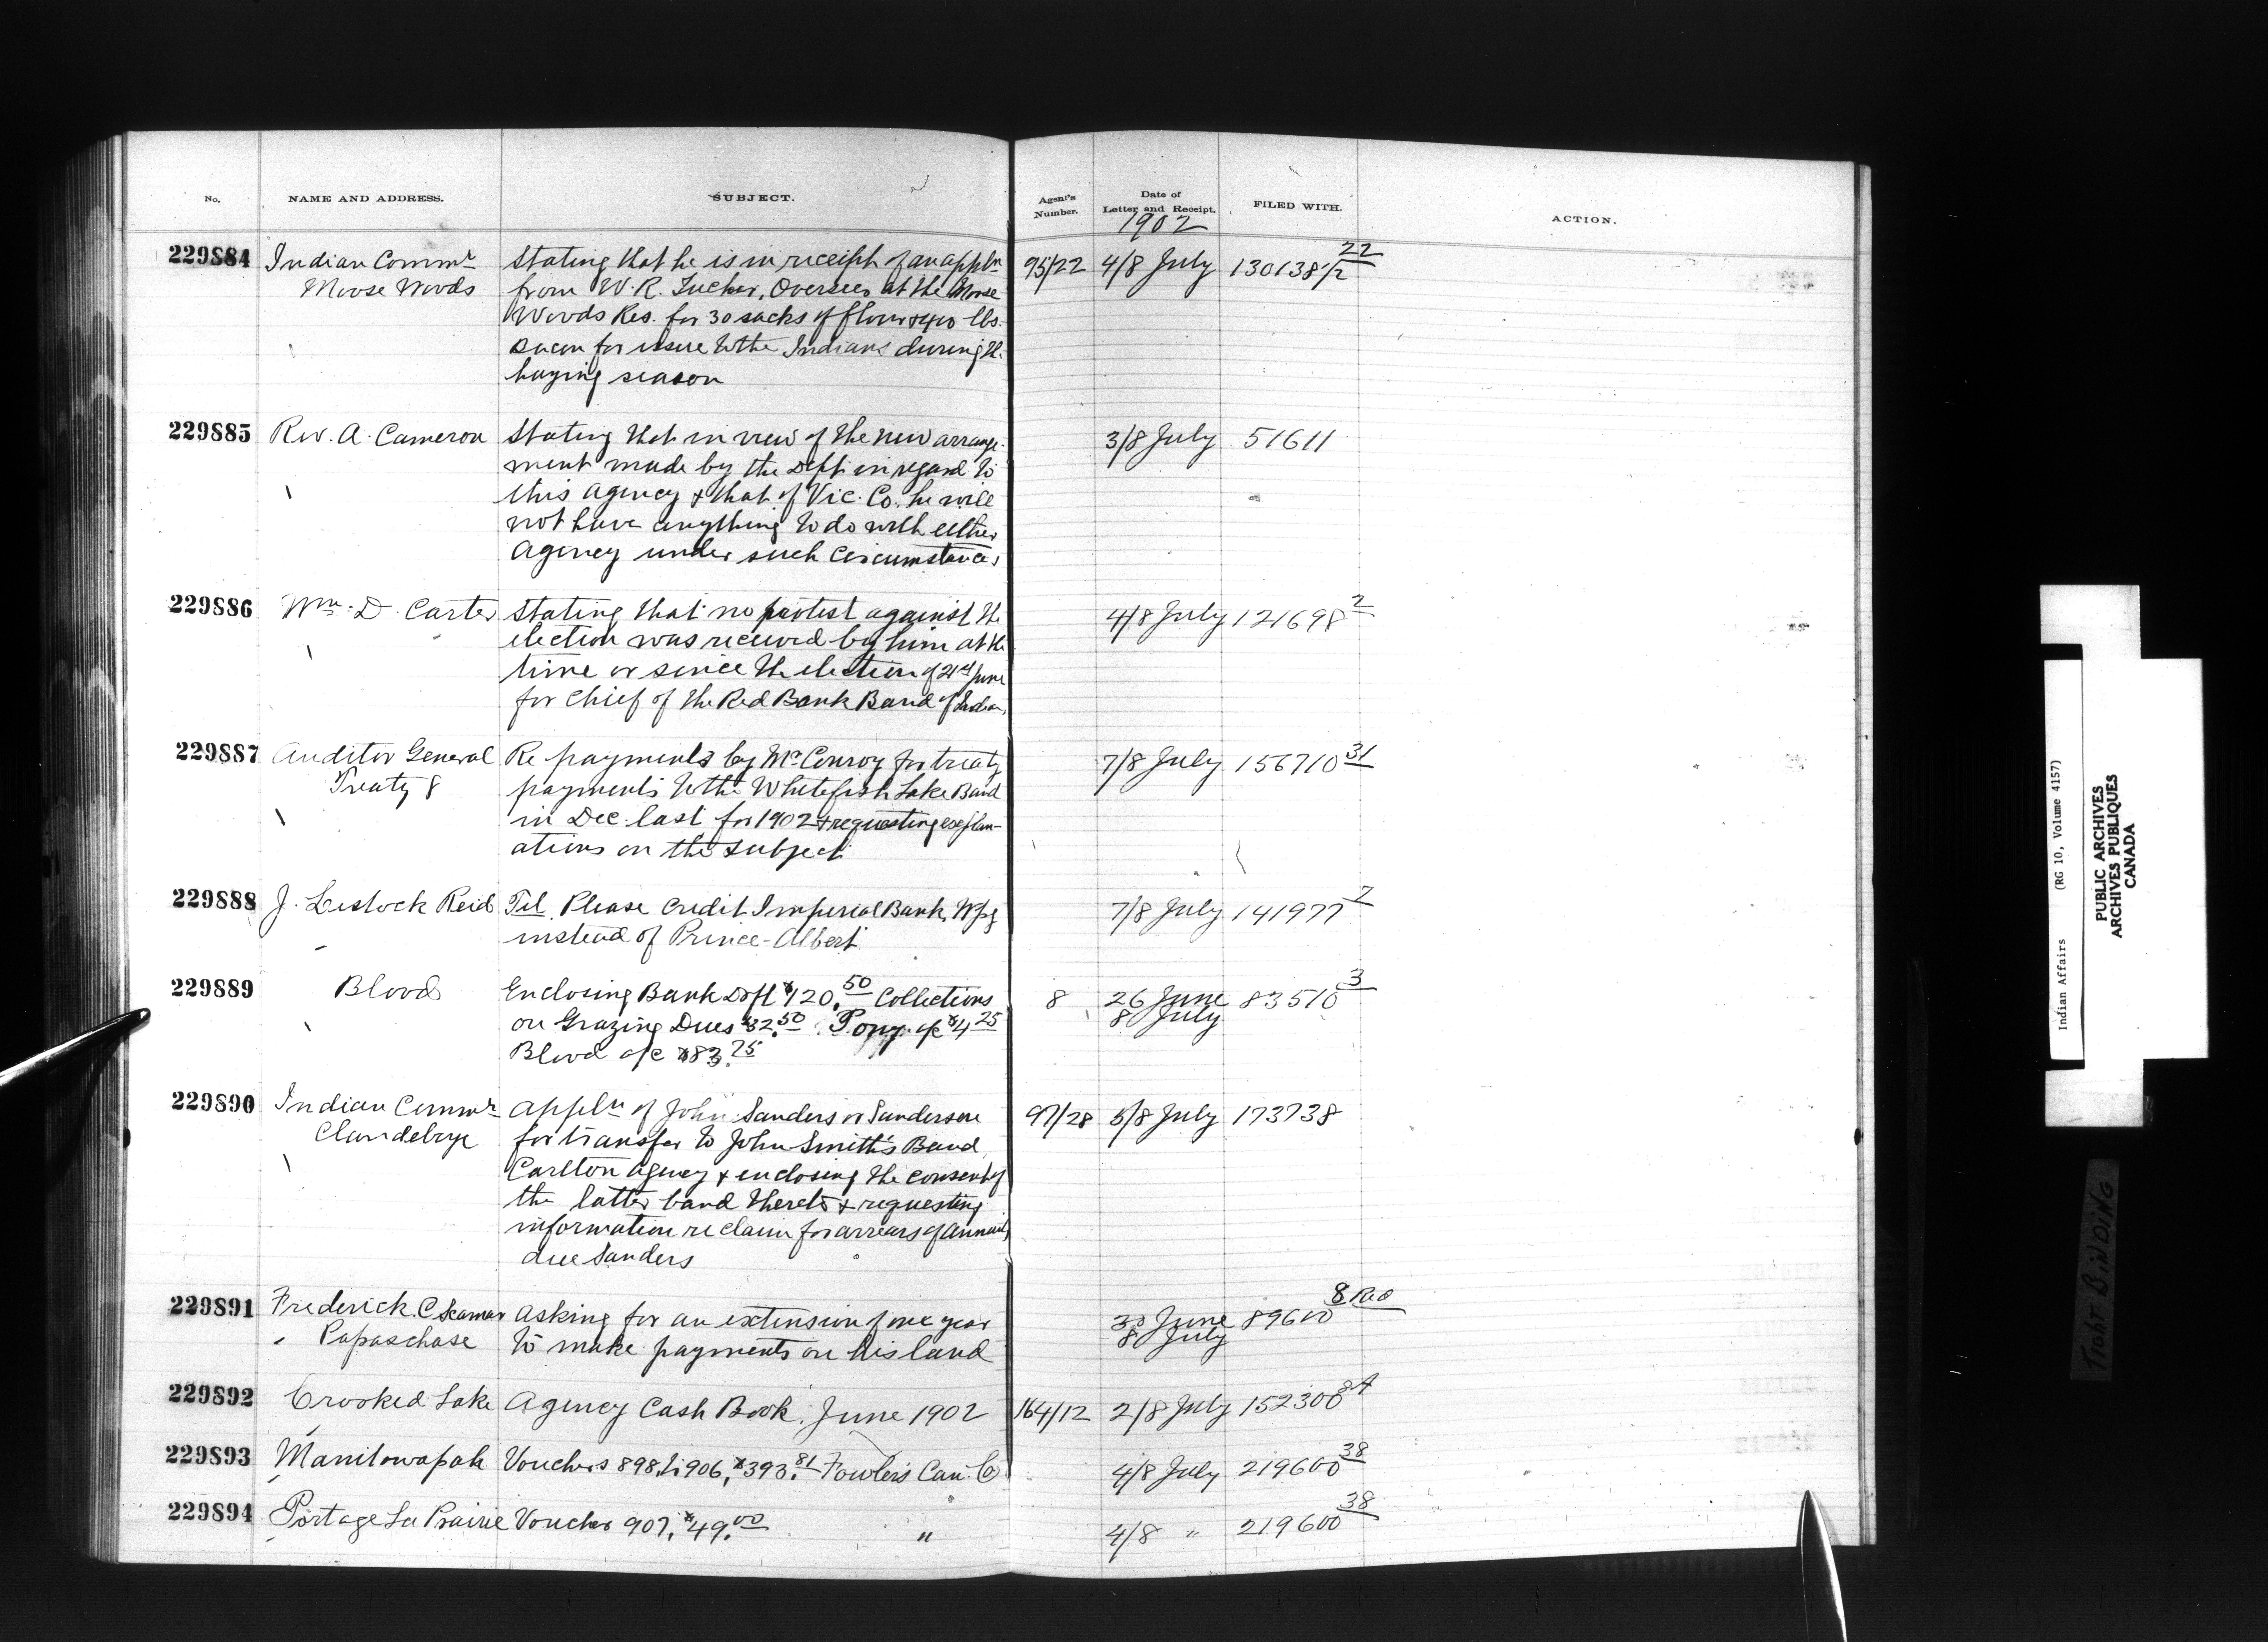 No. NAME AND ADDRESS. SUBJECT. Agent's Number. Date of Letter and Receipt. FILED WITH. ACTION.
1902
229884 Indian Commr Stating that he is in receipt of an appln 95/22 4/8 July 130138 1/2 22
Moose Woods from W. R. Tucker, Overseer at the Moose
Woods Res. for 30 sacks of flour & 400 lbs.
Bacon for issue to the Indians during th.
haying season
229885 Rev. A. Cameron Stating that in view of the new arrange- 3/8 July 51611
ment made by the Dept in regard to
this agency & that of Vic. Co. he will
not have anything to do with either
Agency under such circumstances
229886 Wm. D. Carter Stating that no protest against the 4/8 July 121698 2
election was received by him at the
time or since the election of 21st June
for Chief of the Red Bank Band of Indians
229887 Auditor General Re payments by Mr Conroy for treaty 7/8 July 156710 31
Treaty 8 payments to the Whitefish Lake Band
in Dec. last for 1902 & requesting explan-
ations on the subject
229888 J. Lestock Reid Tel. Please credit Imperial Bank, Wpg 7/8 July 141977 2
instead of Prince-Albert
229889 Blood Enclosing Bank Dft $120.50 Collections 8 26 June 83510 3
on Grazing Dues $32.50 Pony a/c $4.25 8 July
Blood a/c $83.75
229890 Indian Commr Appln of John Sanders or Sanderson 97/28 5/8 July 173738
Clandeboye for transfer to John Smith's Band,
Carlton agency & enclosing the consent of
the latter band thereto & requesting
information re claim for arrears of annuity
due Sanders
229891 Frederick. C Seaman Asking for an extension of one year 30 June 89600 8 Reo
Papaschase to make payments on his land 8 July
229892 Crooked Lake Agency Cash Book. June 1902 164/12 2/8 July 152300 84
229893 Manitowapah Vouchers 898 to 906, $393.81 Fowler's Can. Co 4/8 July 219600 38
229894 Portage La Prairie Voucher 907, $49.00 " 4/8 " 219600 38
Indian Affairs (RG 10, Volume 4157)
PUBLIC ARCHIVES
ARCHIVES PUBLIQUES
CANADA
TIGHT BINDING